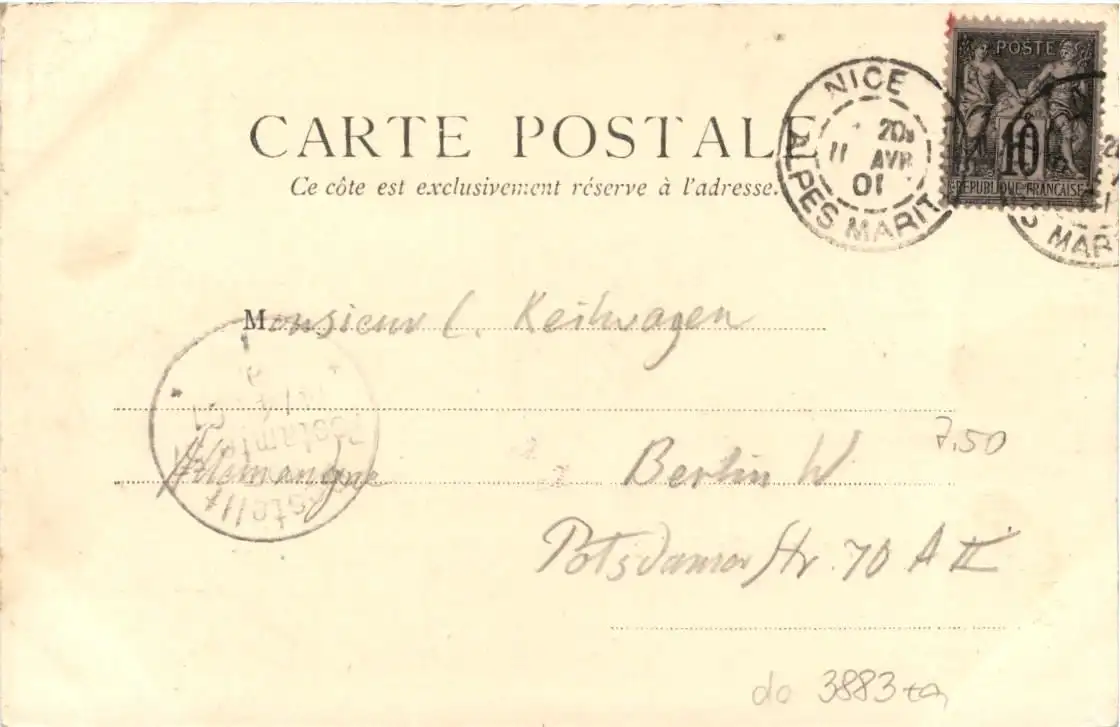 POSTE
10
REPUBLIQUE FRANÇAISE
NICE
20
11 AVR
01
ALPES MARIT.
S MAR
CARTE POSTALE
Ce côte est exclusivement réserve à l'adresse.
Monsieur C. Keilwagen
Allemangne
Berlin W
7.50
Potsdamer Str. 70 A II
do 3883